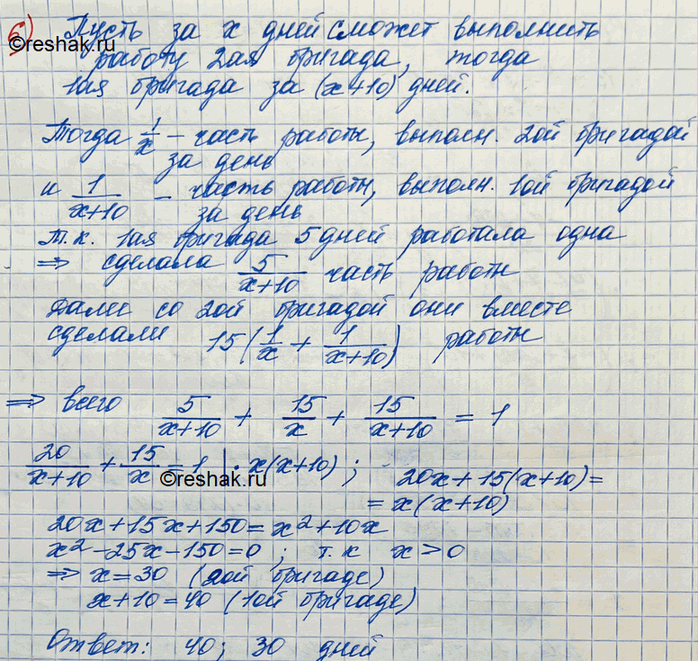 6) Пусть за x дней сможет выполнить
©reshak.ru
работу 2ая бригада, тогда
1ая бригада за (x+10) дней.
Тогда 1/x – часть работы, выполн. 2ой бригадой
за день
и 1/(x+10) – часть работы, выполн. 1ой бригадой
за день
т.к. 1ая бригада 5 дней работала одна
⇒ сделала 5/(x+10) часть работы
Далее со 2ой бригадой они вместе
сделали 15(1/x + 1/(x+10)) работы
⇒ всего 5/(x+10) + 15/x + 15/(x+10) = 1
20/(x+10) + 15/x = 1 | · x(x+10) ; 20x + 15(x+10) =
= x(x+10)
©reshak.ru
20x+15x+150=x²+10x
x²-25x-150=0 ; т.к x>0
⇒ x=30 (2ой бригаде)
x+10=40 (1ой бригаде)
Ответ: 40; 30 дней